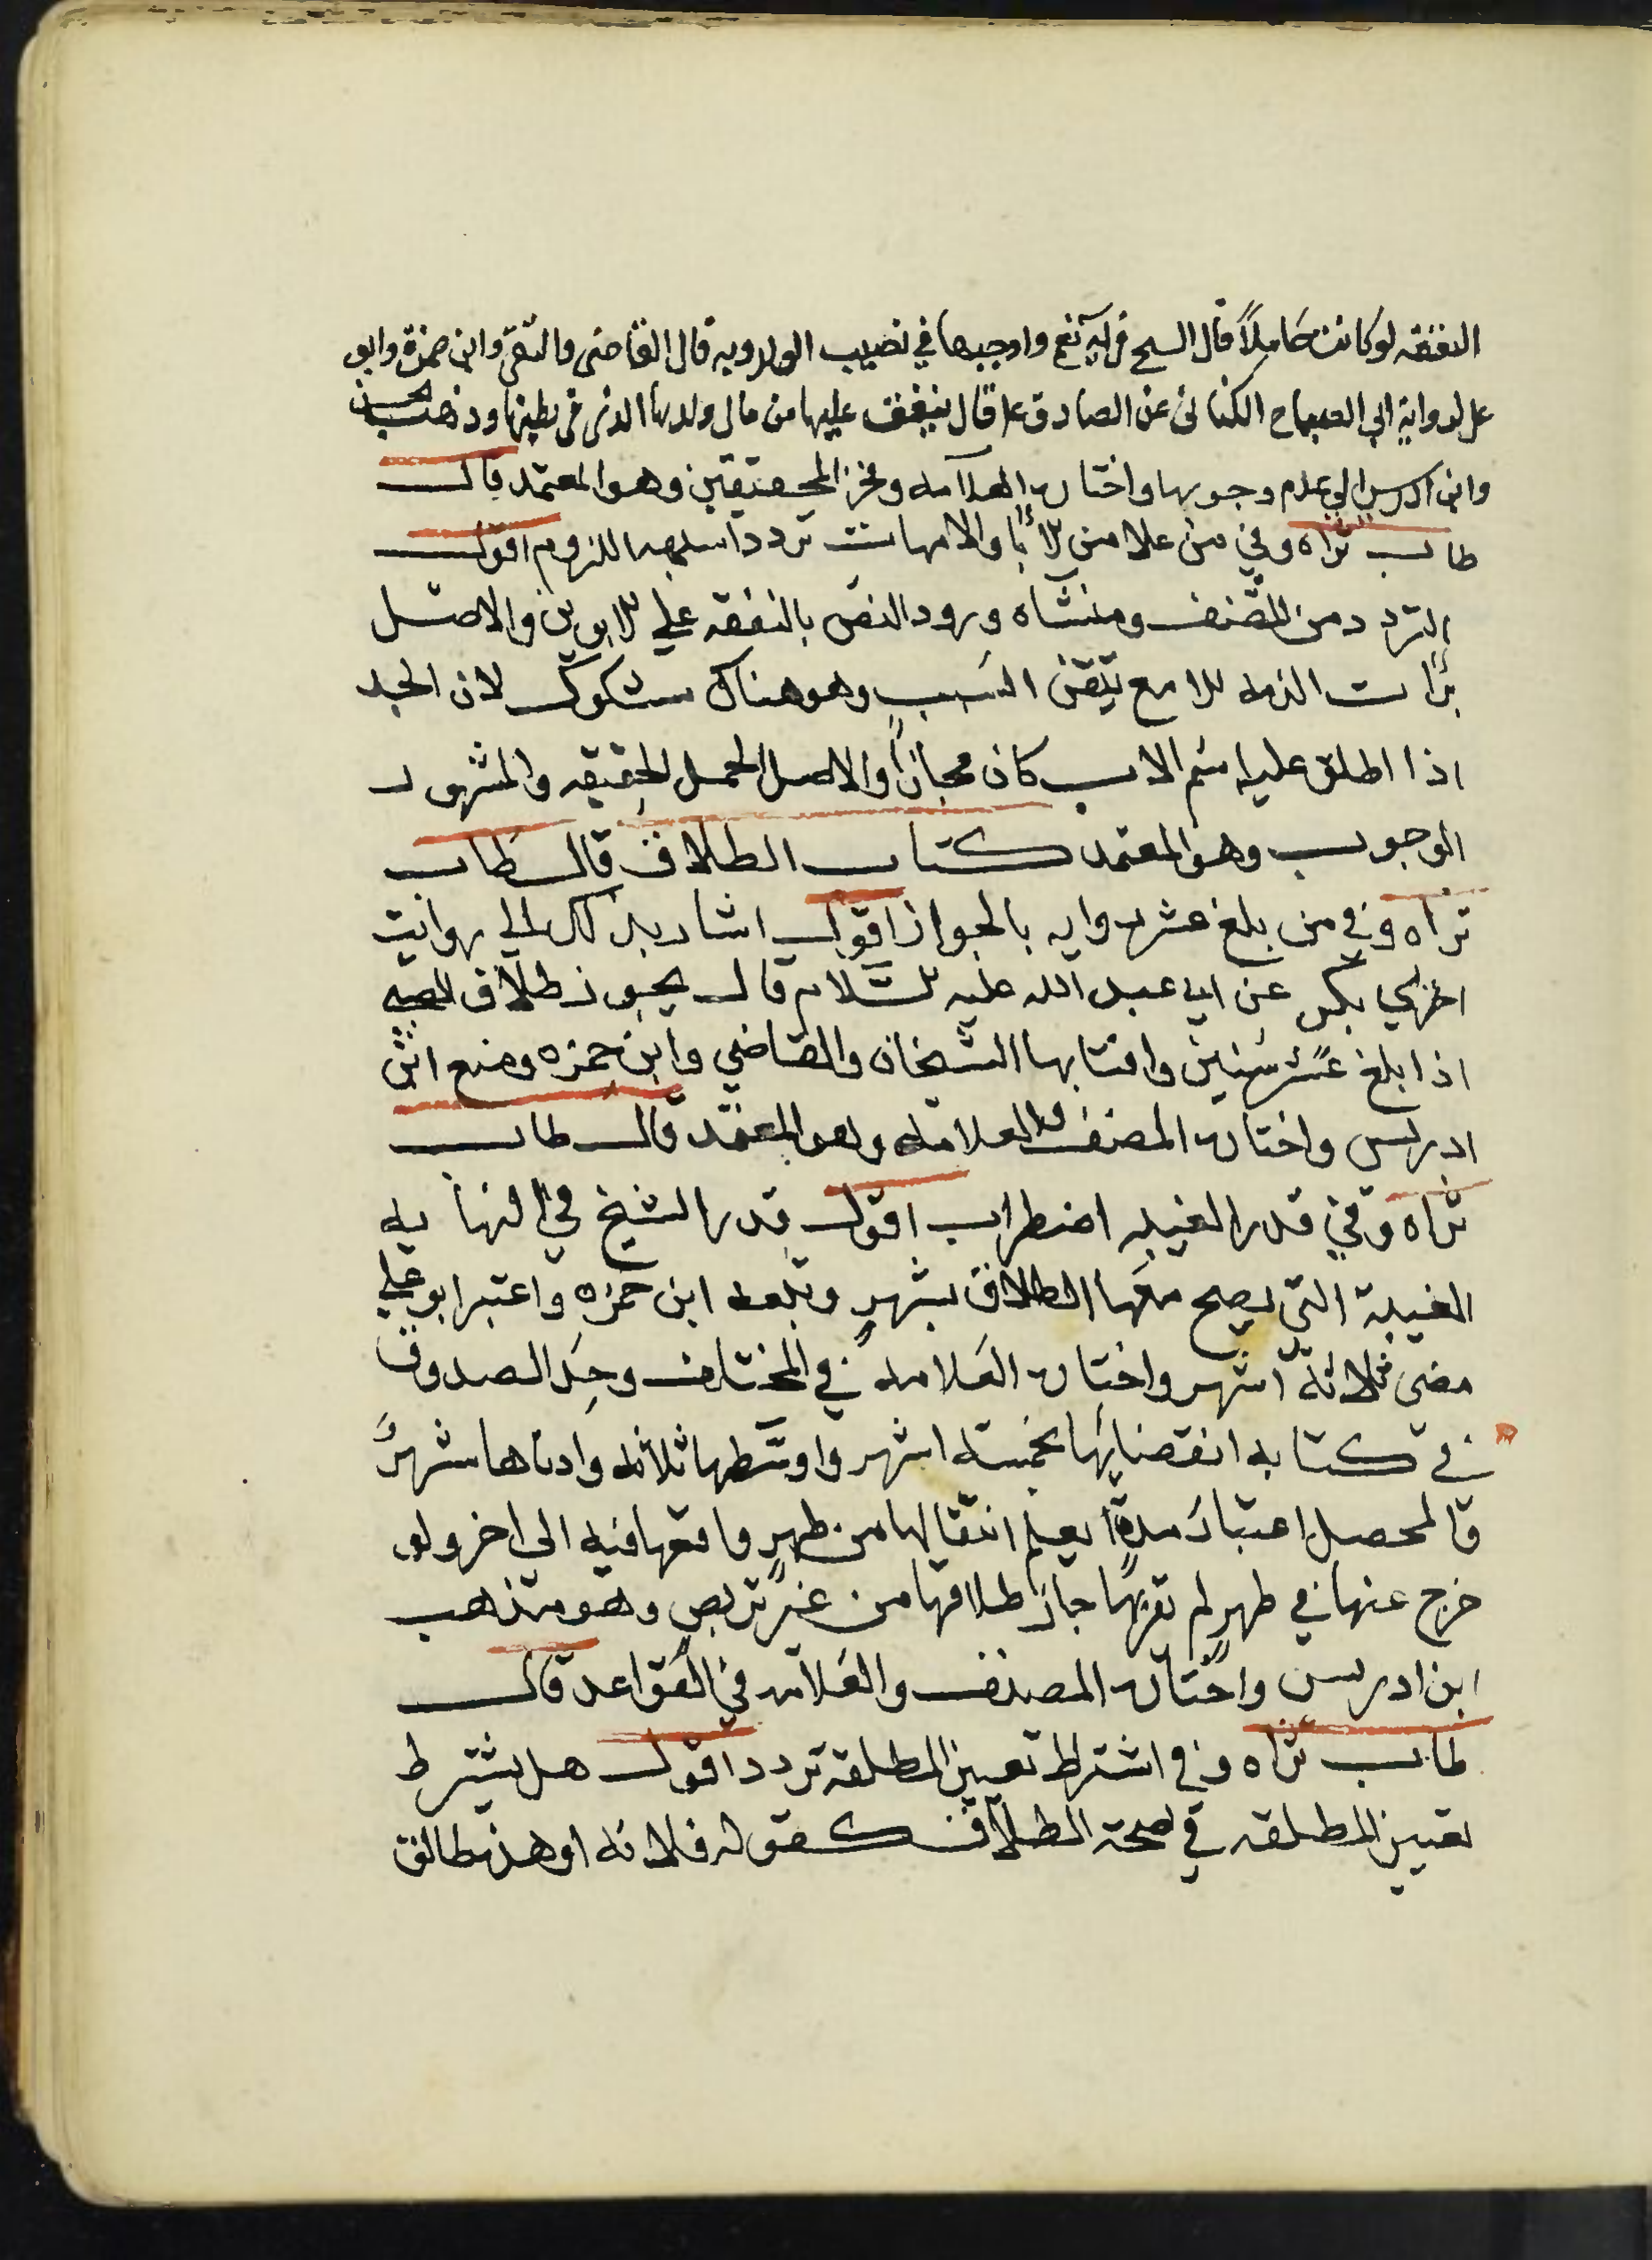 النفقه لو كانت حَاملاً قال الشيخ في يه نعم واوجبها في نصيب الولد وبه قال القاضى والتقى وابن حمزة وابو
على لرواية ابي الصباح الكنانى عن الصادق ع قال ينفق عليها من مال ولدها الذى في بطنها وذهب الحسن
وابن ادريس الى عدم وجوبها واختاره العلامه وفخر المحققين وهو المعتمد قال
طاب ثراه وفي من علا من الآبا والامهات تردد اشبهه اللزوم اقول
التردد من المصنف ومنشاه ورود النص بالنفقه علي الابوين والاصل
برآت الذمه الا مع تيقن السَبب وهو هناك مشكوك لان الجد
اذا اطلق عليه اسم الاب كان مجازاً والاصل الحمل للحقيقه والمشهور
الوجوب وهو المعتمد كتاب الطلاق قال طاب
ثراه وفي من بلغ عشر روايه بالجواز اقول اشار بذلك الي روايت
ابن بكير عن ابي عبد الله عليه السّلام قال يجوز طلاق الصبي
اذا بلغ عشر سنين وافتا بها الشيخان والقاضي وابن حمزه ومنع ابن
ادريس واختاره المصنف والعلامه وهو المعتمد قال طاب
ثراه وفي قدر الغيبه اضطراب اقول قدر الشيخ في النهايه
الغيبة التي يصح معها الطلاق بشهرٍ وتبعه ابن حمزه واعتبر ابو علي
مضى ثلاثة اشهر واختاره العَلامه في المختلف وحدّ الصدوق
في كتابه انقضائها بخمسة اشهر واوسَطها ثلاثه وادناها شهرٌ
فالمحصل اعتبارُ مدةٍ يعلم انتقالها من طهرٍ واقعها فيه الى اخر ولو
خرج عنها في طهرٍ لم يقربها جازَ طلاقها من غير تربص وهو مذهب
ابن ادريس واختاره المصنف والعَلامه في القواعد قال
طاب ثراه وفي اشتراط تعيين المطلقة تردد اقول هل يشترط
تعيين المطلقه في صحة الطلاق كقوله فلانه او هذه طالق